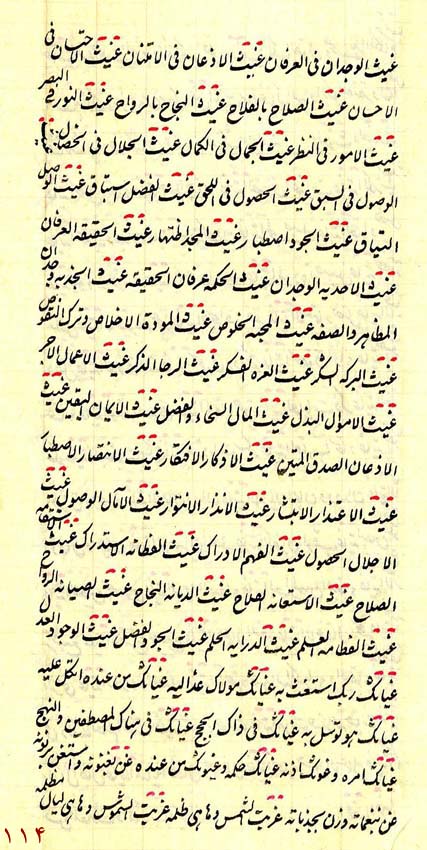 غيث الوجدان فى العرفان غيث الاذعان فى الامتنان غيث الاحتسان فى
الاحسان غيث الصلاح بالفلاح غيث النجاح بالرواح غيث النور فى البصر
غيث الامور فى النظر غيث الجمال فى الكمال غيث الجلال فى الخصال
الوصول فى السبق غيث الحصول فى اللحق غيث الفضل استباق غيث الوصل
التياق غيث الجود اصطبار غيث المجد اظهار غيث الحقيقه العرفان
غيث الاحديه الوجدان غيث الحكمه عرفان الحقيقه غيث الجذبه وجدان
المظاهر والصفه غيث المحبه الخلوص غيث المودة الاخلاص وترك النقوص
غيث البركه الشكر غيث العزه الفكر غيث الرجا الذكر غيث الاعمال الاجر
غيث الاموال البذل غيث المال السخاء والفضل غيث الايمان اليقين غيث
الاذعان الصدق المتين غيث الاذكار الافتكار غيث الانتصار الاصطبار
غيث الاعتذار الابتشار غيث الانذار الانتوار غيث الآمال الوصول غيث
الاجلال الحصول غيث الفهم الادراك غيث الفطانه الاستدراك غيث الاستقامه
الصلاح غيث الاستعانه الفلاح غيث الديانه النجاح غيث الصيانه الرواح
غيث الفطامه العلم غيث الدرايه الحلم غيث الجود الفضل غيث الوجود العدل
غياثك ربك استغث به غياثك مولاك عذ اليه غياثك من عنده اتكل عليه
غياثك هو توسل به غياثك فى ذاك الحج غياثك فى هناك المصطفين والنهج
غياثك امره وغوثك اذنه غياثك حكمه وغيوثك من عنده غن تغنوته واستغن برنوته
غن بنغماته وزن بجذباته غربت الشمس وها هى ظلمه غربت الشموس وها هى ليال مظلمه
١١۴